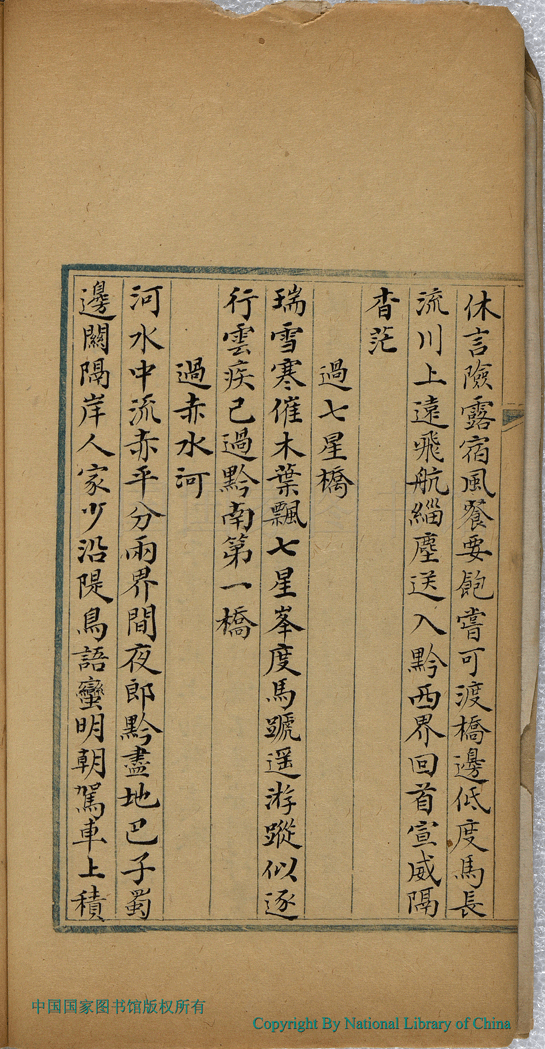 休言險露宿風餐要飽嘗可渡橋邊低度馬長
流川上遠飛航緇塵送入黔西界回首宣威隔
杳茫
過七星橋
瑞雪寒催木葉飄七星峯度馬蹏遥游蹤似逐
行雲疾已過黔南第一橋
過赤水河
河水中流赤平分兩界間夜郎黔盡地巴子蜀
邊關隔岸人家少沿隄鳥語蠻明朝駕車上積
中国国家图书馆版权所有
Copyright By National Library of China